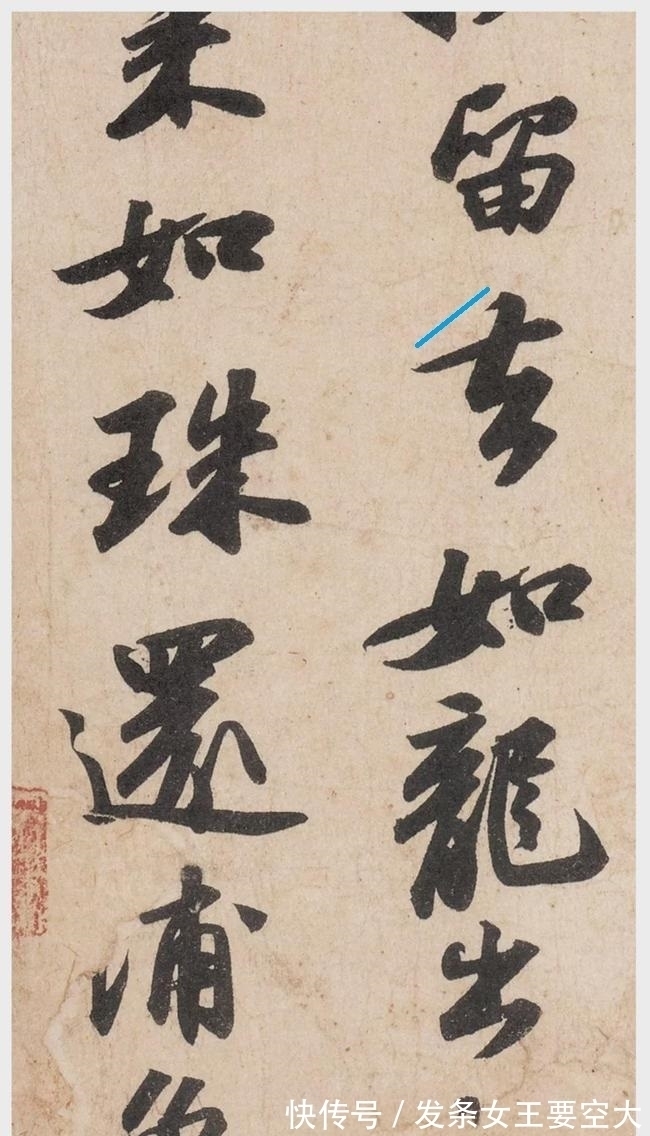 留去如龍出
来如珠還浦
快传号 / 发条女王要空大